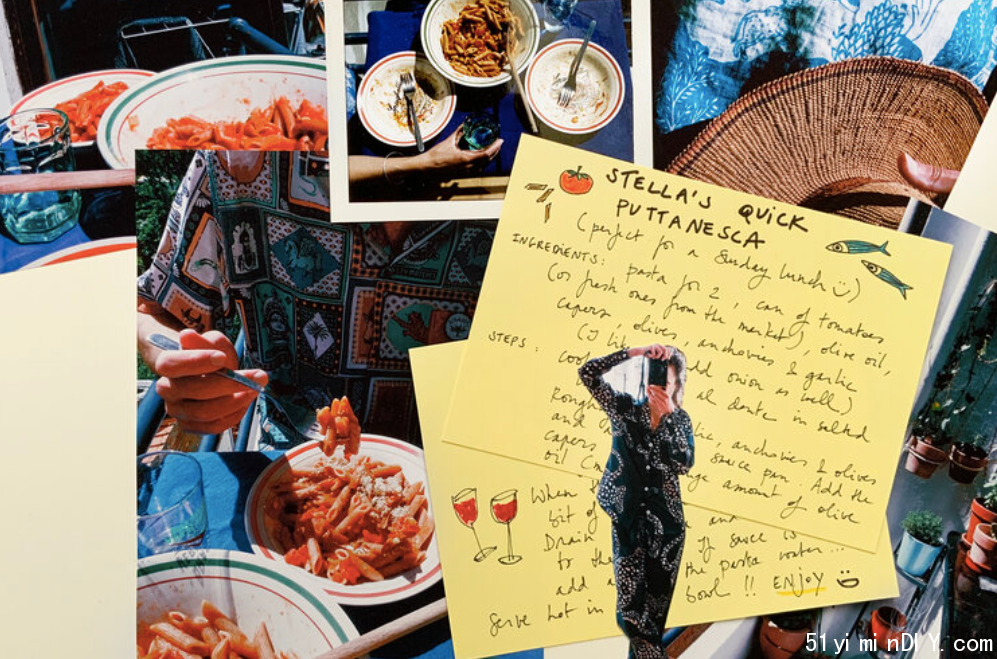 STELLA'S QUICK
PUTTANESCA
(perfect for a Sunday lunch
INGREDIENTS: pasta for 2, can of tomatoes
(or fresh ones from the market), olive oil,
capers, olives, anchovies & garlic
(I like add onion as well)
STEPS: al dente in salted
anchovies & olives
and sauce pan. Add the
capers amount of olive
oil
When and
bit of If sauce is
Drain the pasta water...
to the
add a bowl!! ENJOY
Serve hot in
51yiminDIY.com